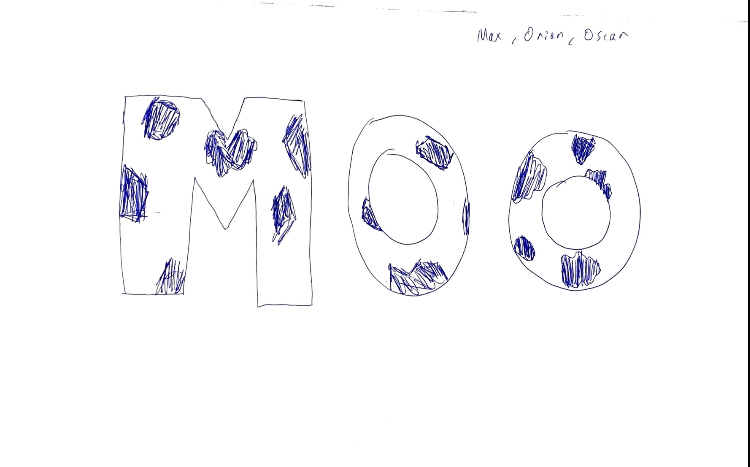 Max, Orion, Oscar
MOO